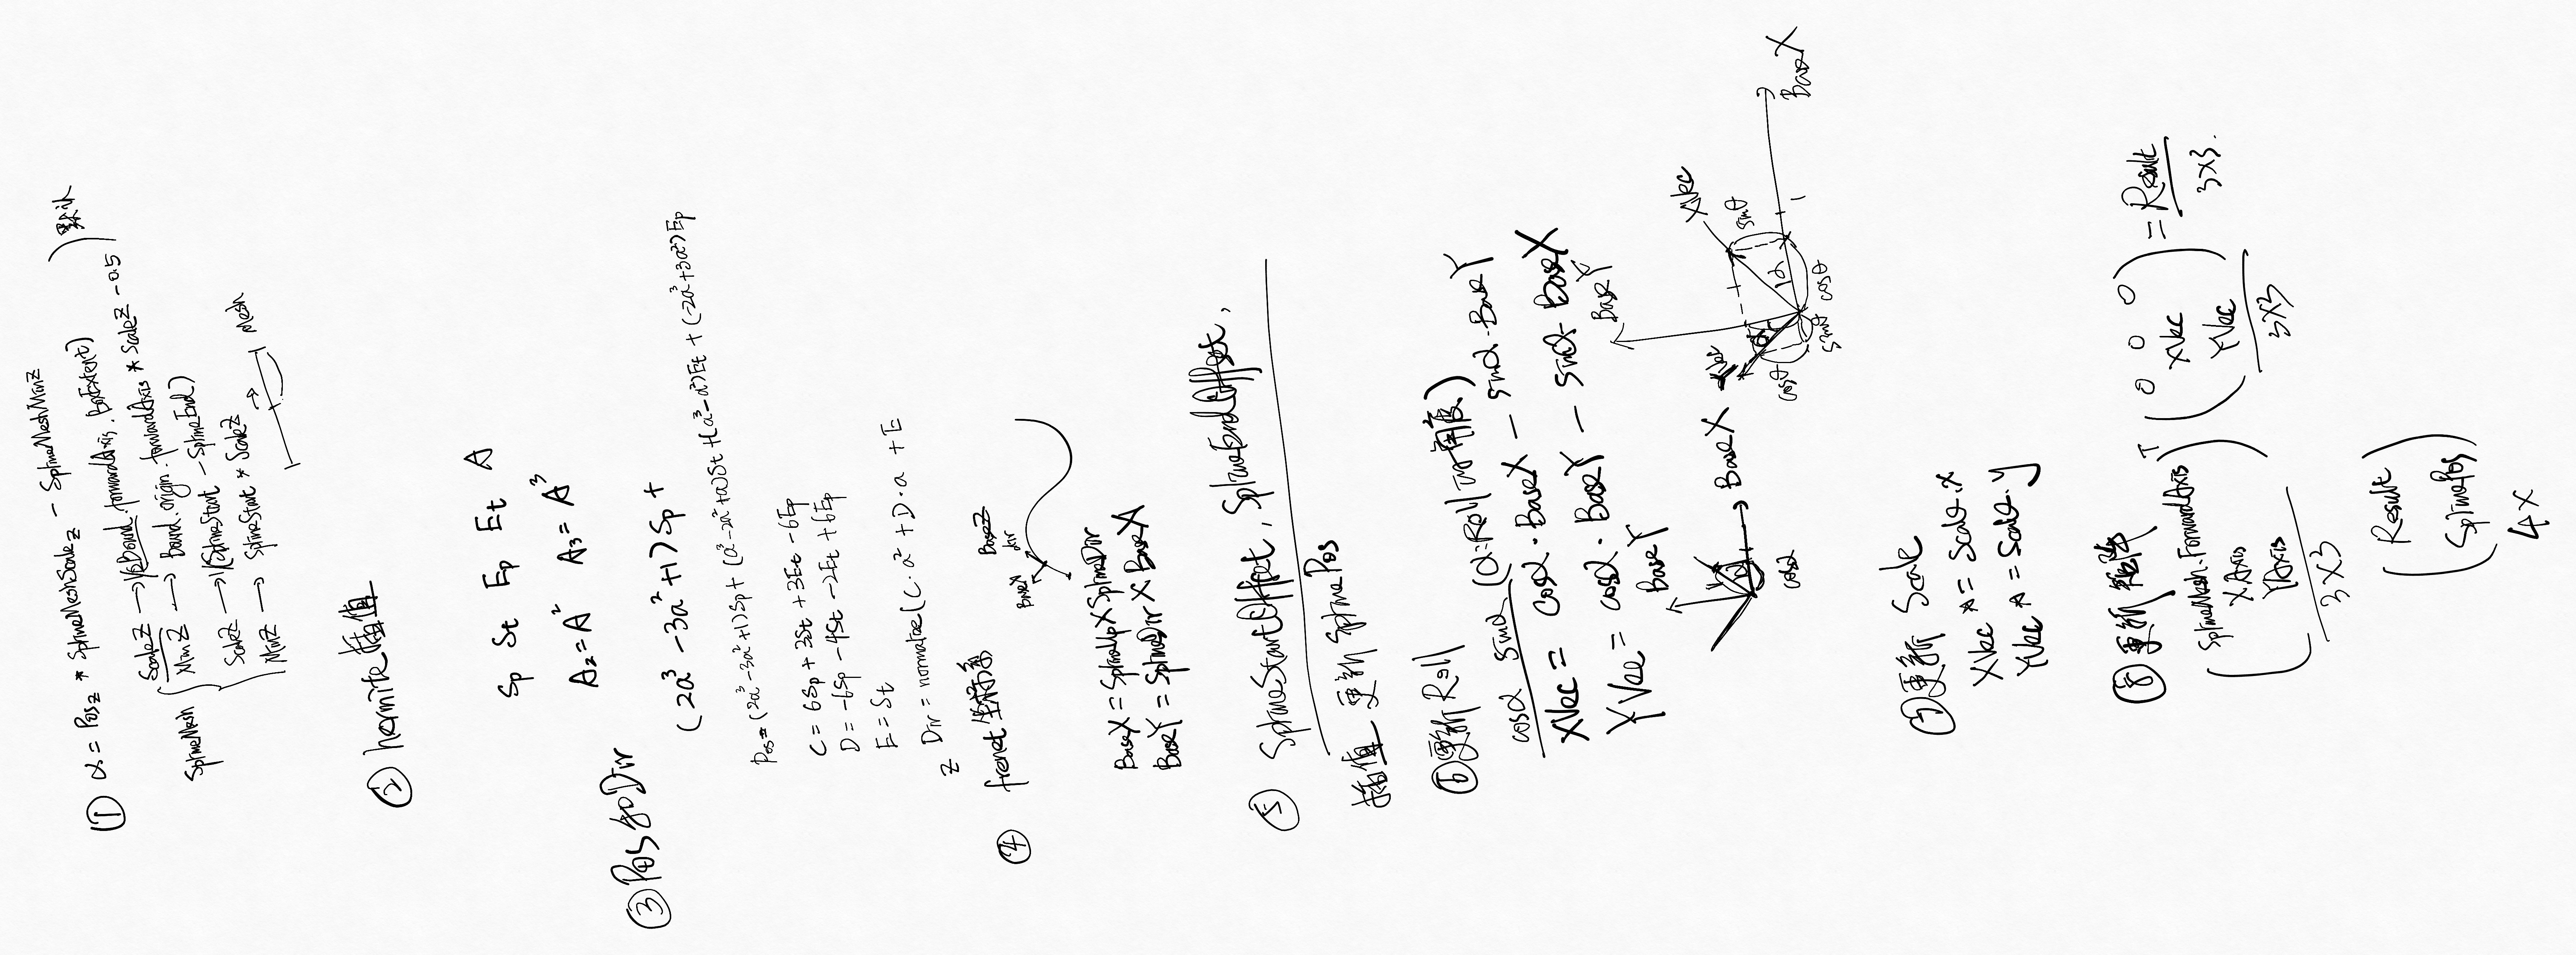 ① α = Pos_z * SplineMeshScale_z - SplineMeshMinZ
SplineMesh
ScaleZ → 1/(2Bound.forwardAxis.BoxExtent)
MinZ → Bound.origin.forwardAxis * ScaleZ - 0.5
默认
ScaleZ → 1/(SplineStart - SplineEnd)
MinZ → SplineStart * ScaleZ
Mesh
② hermite插值
Sp St Ep Et A
A₂ = A² A₃ = A³
③ Pos和Dir
(2a³ - 3a² + 1) Sp +
Pos = (2a³ - 3a² + 1) Sp + (a³ - 2a² + a) St + (a³ - a²) Et + (-2a³ + 3a²) Ep
C = 6Sp + 3St + 3Et - 6Ep
D = -6Sp - 4St - 2Et + 6Ep
E = St
Z Dir = normalize(C · a² + D · a + E
④ frenet 坐标系
BaseX
BaseZ
dir
BaseX = SplineUp X SplineDir
BaseY = SplineDir X BaseX
⑤ SplineStartOffset, SplineEndOffset,
插值 更新 SplinePos
⑥ 更新 Roll
cosα sinα (α:Roll的角度)
XVec = cosα · BaseX - sinα · BaseY
YVec = cosα · BaseY - sinα · BaseX
BaseY
BaseX
cosα
BaseY
XVec
YVec
sinθ
cosθ
α
α
1
BaseX
sinθ
cosθ
⑦ 更新 Scale
XVec *= Scale.x
YVec *= Scale.y
⑧ 更新 矩阵
(SplineMesh.ForwardAxis
XAxis
YAxis)^T
3X3
(0 0 0
XVec
YVec)
3X3
= Result
3X3.
(Result
SplinePos)
4X